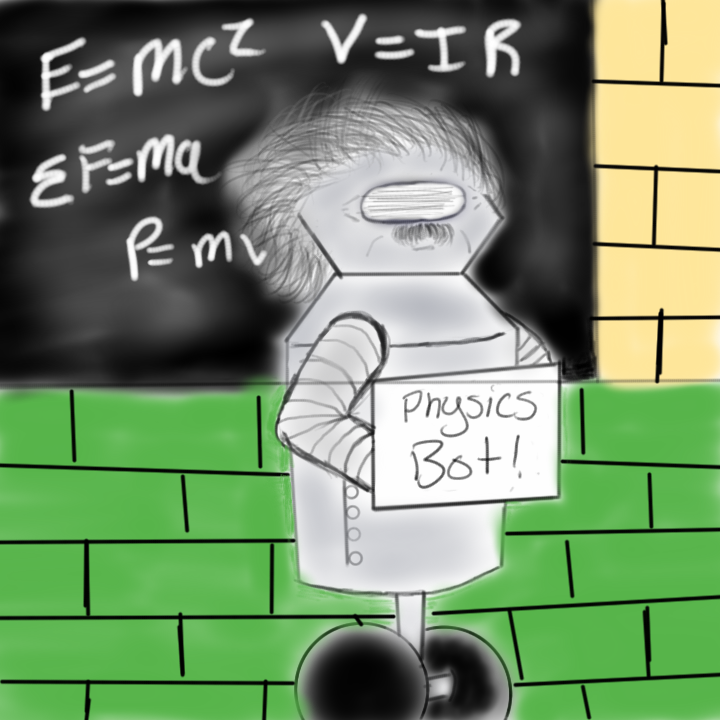 E=mc² V=IR
ΣF=ma
P=mv
Physics
Bot!